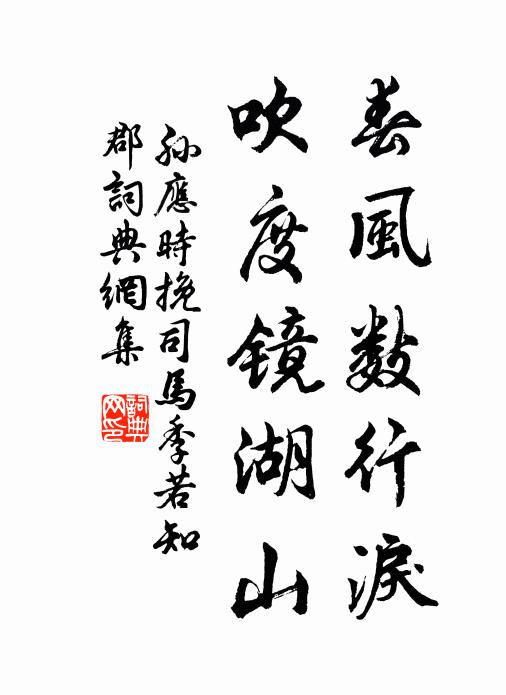 春風數行淚
吹度镜湖山
孫應時挽司馬季若知
郡詞典網集
詞典網印